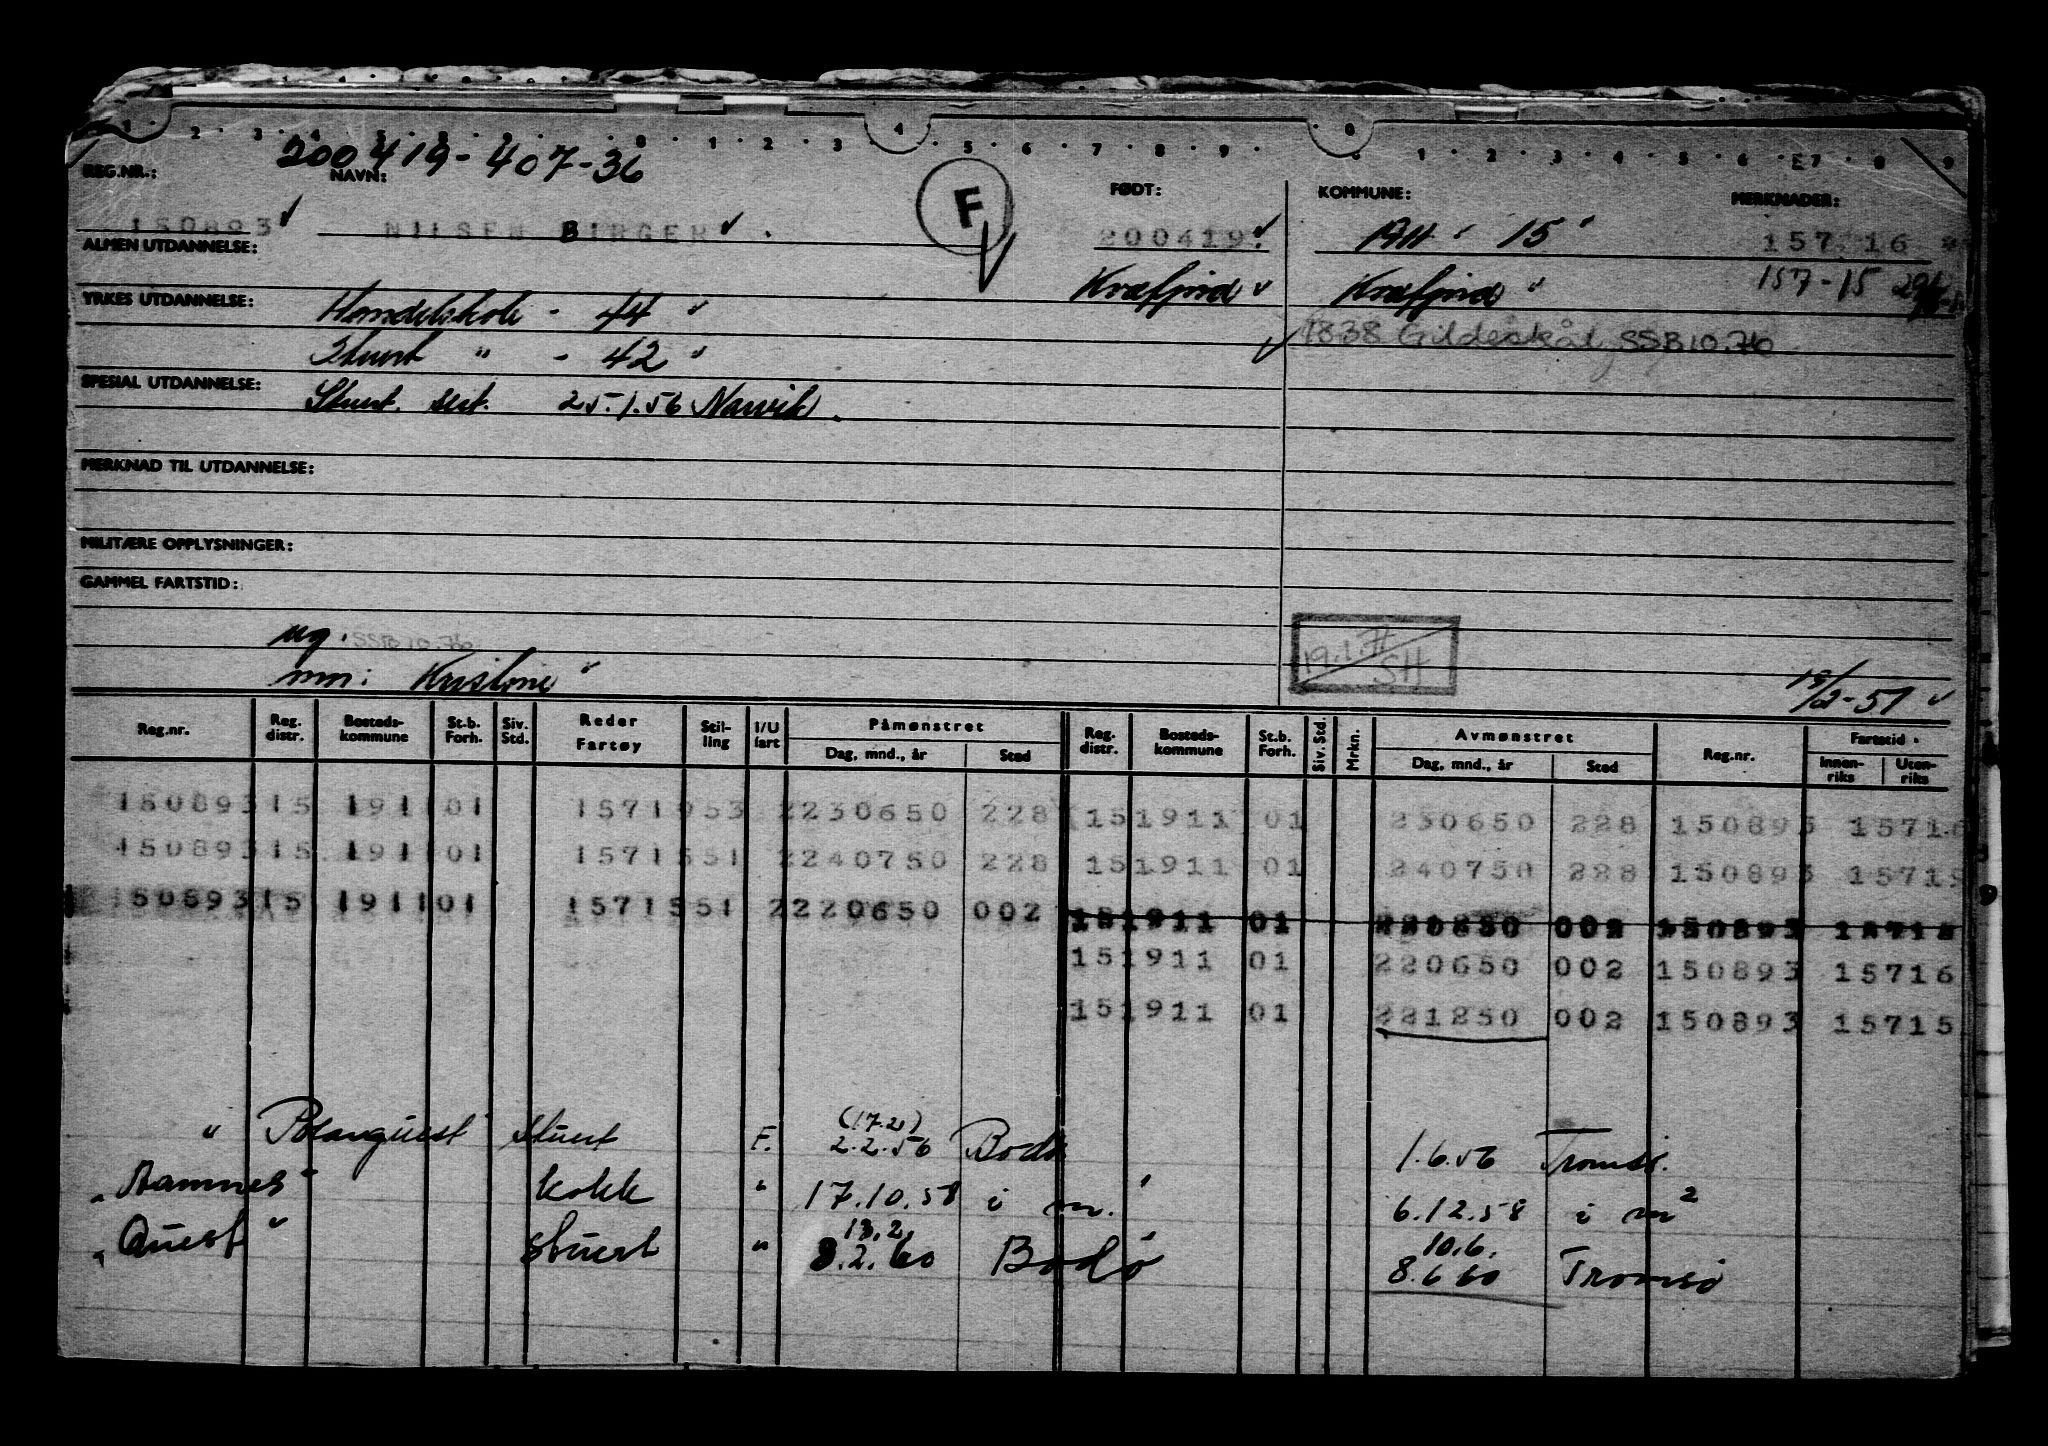 200419-407-36
REG.NR.: NAVN: FØDT: KOMMUNE: MERKNADER:
150893 NILSEN BIRGER F 200419 1911 15 157 16
ALMEN UTDANNELSE: Kvæfjord Kvæfjord 157-15
YRKES UTDANNELSE: Handelskole - 44 "
1838 Gildeskål, SSB 10.76
Stuert " - 42 "
SPESIAL UTDANNELSE: Stuert. sert. 25.1.56 Narvik.
MERKNAD TIL UTDANNELSE:
MILITÆRE OPPLYSNINGER:
GAMMEL FARTSTID:
ug. SSB 10.76
19.1.71 SH
mn: Kristine 19/2-51
Reg.nr. Reg. distr. Bosteds-kommune St.b. Forh. Siv. Std. Reder Fartøy Stil-ling I/U fart Påmønstret Reg. distr. Bosteds-kommune St.b. Forh. Siv. Std. Mrkn. Avmønstret Reg.nr. Fartstid
Dag, mnd., år Sted Dag, mnd., år Sted Innen-riks Uten-riks
150893 15 1911 01 1571953 2 230650 228 15 1911 01 230650 228 150893 15716
150893 15 1911 01 1571551 2 240750 228 15 1911 01 240750 228 150893 15715
150893 15 1911 01 1571551 2 220650 002 15 1911 01 220650 002 150893 15715
15 1911 01 220650 002 150893 15716
15 1911 01 221250 002 150893 15715
(17.2)
" Polarquest Stuert F. 2.2.56 Bodø 1.6.56 Tromsø.
"Hamnes" kokk " 17.10.58 i m. 6.12.58 i m 2
13.2 10.6.
"Quest" Stuert " 8.2.60 Bodø 8.6.60 Tromsø